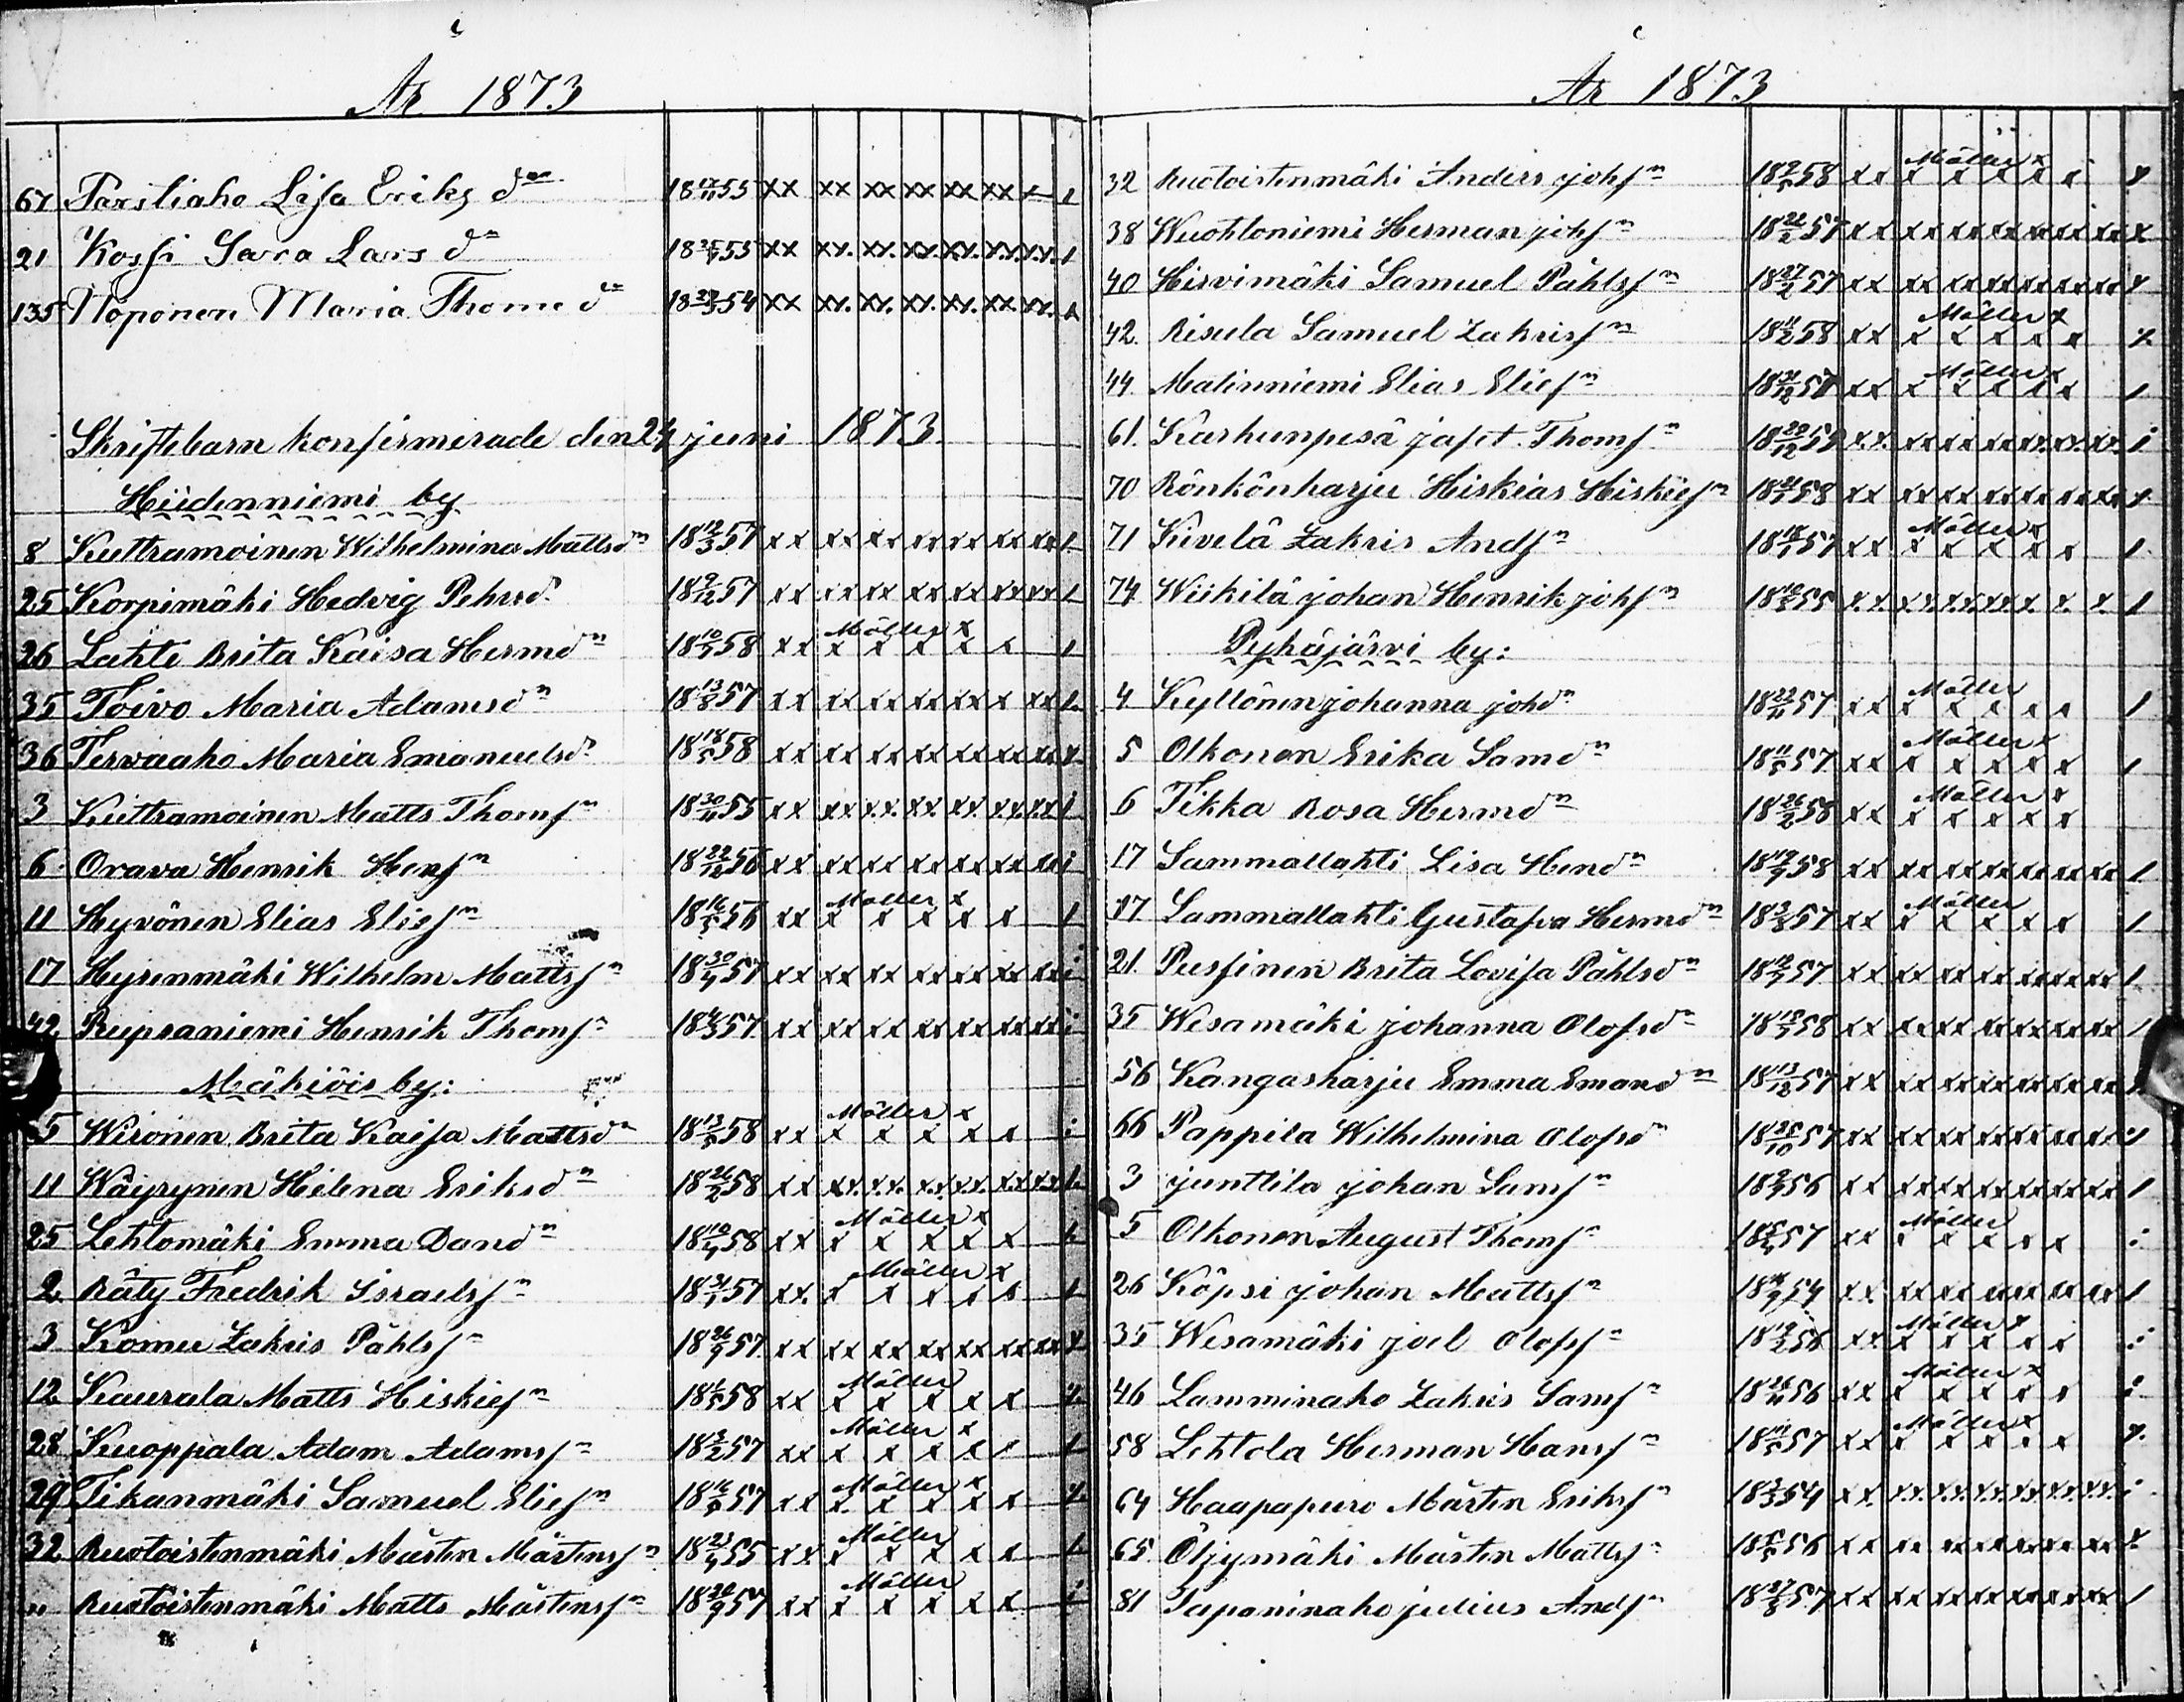 År 1873
67 Parsliaho Lisa Eriks dn 18 55 xx xx xx xx xx xx
21 Kossi Sara Lars dn 18 55 xx xx. xx. xx. xx. x.x.x.
135 Noponen Maria Thom. dn 18 54 xx xx. xx. xx. xx. xx. xx.
Skriftebarn konfirmerade den 24 juni 1873
Hiidenniemi by
8 Kuttramoinen Wilhelmina Mattsdn 18 12/3 57 xx xx xx xx xx xx xx
25 Korpimäki Hedvig Pehrsd. 18 9/12 57 xx xx xx xx xx xx xx
26 Lahti Brita Kaisa Hermdn 18 58 xx Möller x x x x x x
35 Toivo Maria Adamsdn 18 13/8 57 xx xx xx xx xx xx
36 Tervaaho Maria Emanuelsd. 18 18/5 58 xx xx xx xx xx xx xx
3 Kuttramoinen Matts Thomsn 18 55 xx xx x.x. xx. xx. x.x.xx
6 Orava Henrik Hensn 18 22/12 56 xx xx xx xx xx xx
11 Hyvönen Elias Eliesn 18 16/5 56 xx Möller x x x x x x
17 Hyrenmäki Wilhelm Mattssn 18 57 xx xx xx xx xx xx xx
42 Rupsaniemi Henrik Thomsn 18 57 xx xx xx xx xx xx xx
Mäkiöis by:
5 Wironen Brita Kaisa Mattsdn 18 58 xx Möller x x x x x x
11 Wäyrynen Helena Eriksdn 18 26/2 58 xx x.x. x.x. x.x. x.x. x.x.x.x.
25 Lehtomäki Emma Dandn 18 58 xx Möller x x x x x x
2 Räty Fredrik Israelssn 18 31/1 57 xx. Möller x x x x x x
3 Komu Zakris Påhlssn 18 26/9 57 xx xx xx xx xx xx xx
12 Kaurala Matts Hiskiesn 18 58 xx Möller x x x x x
28 Kuoppala Adam Adamssn 18 3/2 57 xx Möller x x x x x x
29 Tikanmäki Samuel Eliesn 18 57 xx Möller x x. x x x x
32 Ruotoistenmäki Mårten Mårtenssn 18 55 xx Möller x x x x x
" Ruotoistenmäki Matts Mårtenssn 18 57 xx Möller x x x x x
År 1873
32 Ruotoistenmäki Anders johsn 18 58 xx Möller x x x x x x
38 Wuohtoniemi Herman johsn 18 22/2 57 xx xx xx xx xx xx x
40 Hirvimäki Samuel Påhlssn 18 27/2 57 xx xx xx xx xx xx
42. Risula Samuel Zakrissn 18 58 xx Möller x x x x x x
44. Matinniemi Elias Eliesn 18 57 xx Möller x x x x x x
61. Karhunpesä jafet Thomsn 18 20/12 57 x.x. xx xx xx x.x. x.x.
70 Rönkönharju Hiskias Hiskiesn 18 58 xx xx xx xx xx xx
71 Kivelä Zakris Andsn 18 57 xx Möller x x x x x x
74 Wiikilä johan Henrik johsn 18 55 x.x. x.x. x.x. xx x. x. x.
Pyhäjärvi by:
4 Kyllönen johanna johdn 18 57 xx Möller x x x x x
5 Olkonen Erika Samdn 18 57 xx Möller x x x x x x
6 Tikka Rosa Hermdn 18 26/2 58 xx Möller x x x x x x
17 Sammallahti Lisa Hendn 18 58 xx xx xx xx xx xx
17 Sammallahti Gustafva Hermdn 18 57 xx Möller x x x x x
21. Pussinen Brita Lovisa Påhlsdn 18 57 xx xx xx xx xx xx
35 Wesamäki johanna Olofsdn 18 58 xx xx xx xx xx xx
56 Kangasharju Emma Emandn 18 13/12 57 xx xx xx xx xx xx
66 Pappila Wilhelmina Olofsdn 18 25/10 57 xx xx xx xx xx xx
3 junttila johan Samsn 18 56 xx xx xx xx xx xx
5 Olkonen August Thomsn 18 57 xx Möller x x x x x
26 Köpsi johan Mattssn 18 54 xx xx xx xx xx xx
35 Wesamäki joel Olofssn 18 56 xx Möller x x x x x x
46 Lamminaho Zakris Samsn 18 56 xx Möller x x x x x x
58 Lehtola Herman Hanssn 18 57 xx Möller x x x x x x
64 Haapapuro Mårten Erikssn 18 54 xx. x.x. x.x. x.x. x.x. x.x.
65. Öljymäki Mårten Mattssn 18 56 xx xx xx xx xx xx
81 Tapaninaho julius Andsn 18 27/8 57 xx xx xx xx xx xx